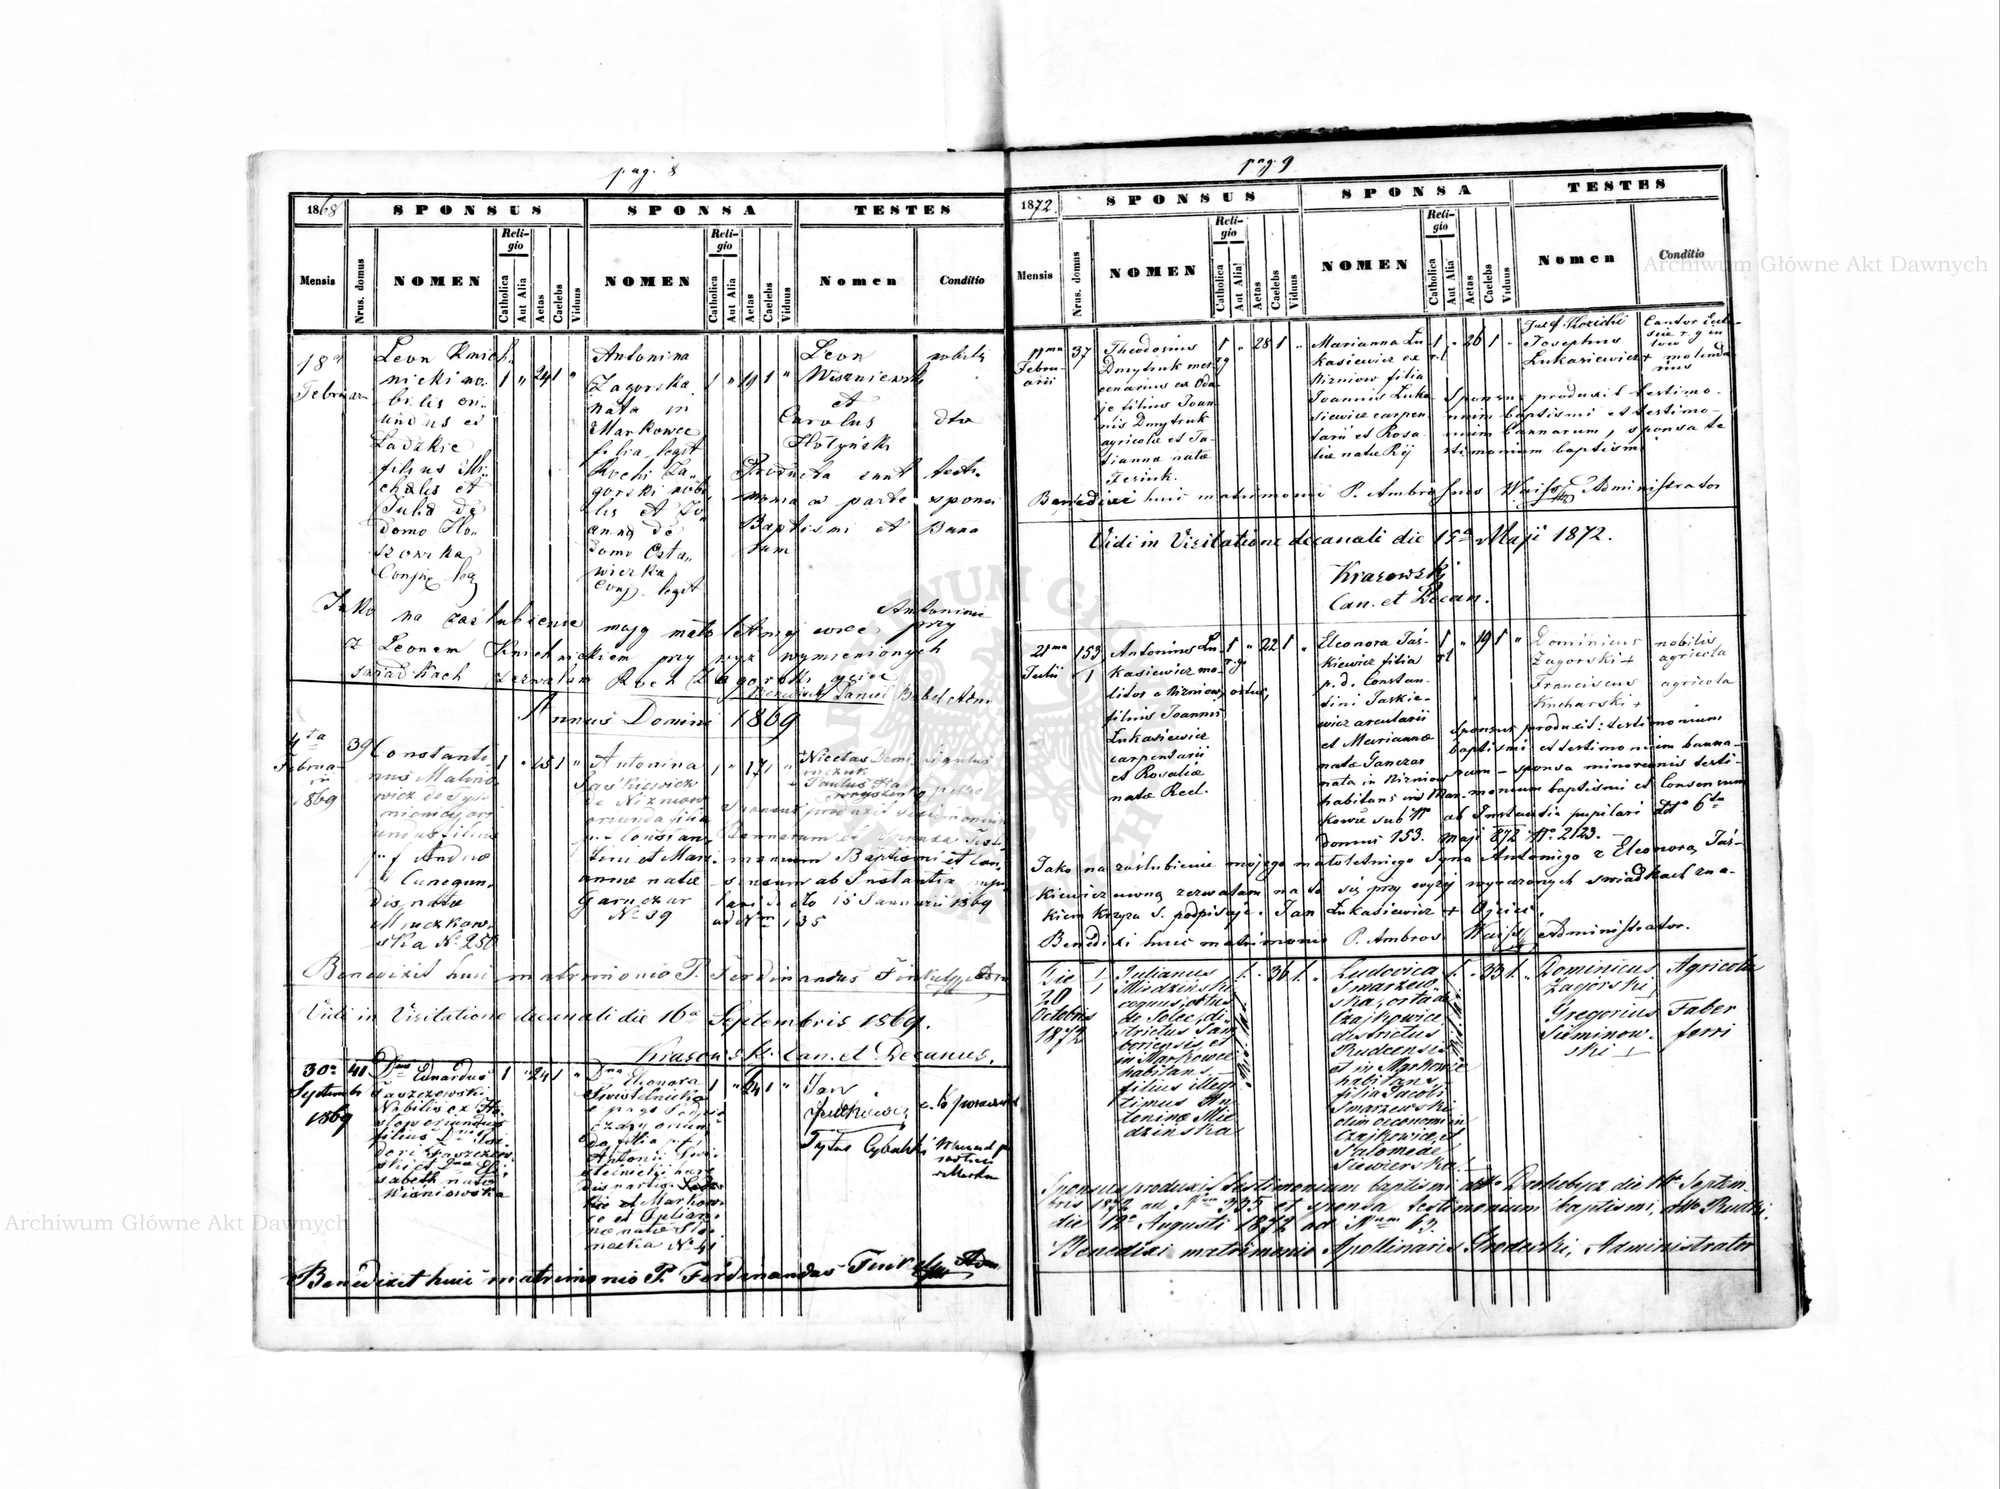 pag. 8
1868
SPONSUS
SPONSA
TESTES
Mensis
Nrus. domus
NOMEN
Religio
Catholica
Aut Alia
Aetas
Caelebs
Viduus
NOMEN
Religio
Catholica
Aut Alia
Aetas
Caelebs
Viduus
Nomen
Conditio
18a
Februar
Leon Kmich
nicki no-
bilis ori-
undus ex
filius Mi-
chalis et
Julia de
domo Ho-
szowska
Conju. leg
1 " 24 1 "
Antonina
Zagorska
nata in
Markowce
filia legit
Rochi Za-
gorski nobi
lis et Jo-
anna de
domo Osta-
wiezka
conj. legit
1 " 19 1 "
Leon
Wiszniewski
et
Carolus
Hotyński
nobilis
dto
Producta sunt testi
monia a parte sponsi
Baptismi et Bano
rum
Jako na zaslubienie mają małoletniej córce Antoninie przy
z Leonem Kmichnickiem przy wyz wymienionych
swiadkach zezwalam Roch Zagorski ociec
Benedixit Daniel Babel Adm
Annus Domini 1869
4ta
Februa-
rii
1869
39
Constanti-
nus Malino-
wicz de Tys-
mienicy ori
undus filius
p. f. Andreæ
et Cunegun-
dis nata
Mraczkow-
ska No 250
1 " 25 1 "
Antonina
Jaśkiewicz
de Nizniow
oriunda filia
p. d. Constan-
tini et Mari-
annæ natæ
Garnczar
No 39
1 " 17 1 "
Nicetas Demi
Paulus Ha
Sponsus produxit testimonium
Bannorum et Sponsa Testi-
monium Baptismi et Con-
sensum ab Instantia pupi-
lari de dto 15 Januarii 1869
ad Nrm 135
Benedixit huic matrimonio P. Ferdinandus Adm
Vidi in Visitatione decanali die 16a Septembris 1869.
Krasowski Can. et Decanus.
30a
Septembr
1869
41
Dnus Eduardus
Taszczewski
Nobilis ex Ha-
oriundus
filius Dni Teo-
dori Taszczew
ski et Dnæ Eli-
sabeth natæ
Wisniowska
1 " 24 1 "
Dna
Eleonora
Swistelnicka
e pago
oriun
da filia p. f.
Antonii Swi-
stelnicki
et Markow
ce et
næ natæ
No 41
1 " 24 1 "
Jan
Tytus Cybulski
Benedixit huic matrimonio P. Ferdinandus Adm
pag. 9
1872
SPONSUS
SPONSA
TESTES
Mensis
Nrus. domus
NOMEN
Religio
Catholica
Aut Alia
Aetas
Caelebs
Viduus
NOMEN
Religio
Catholica
Aut Alia
Aetas
Caelebs
Viduus
Nomen
Conditio
11ma
Febru-
arii
37
Theodosius
Dmytruk mer-
cenarius ex Oda-
je filius Joan-
nis Dmytruk
agricolæ et Ta-
tiannæ natæ
Fesiuk.
1 " 28 1 "
Marianna Lu-
kasiewicz ex
Nizniow filia
Joannis Luka
siewicz carpen
tarii et Rosa-
liæ natæ Rej
1 r.l " 26 1 "
Josef Kozicki
Josephus
Lukasiewicz +
Cantor Eccle-
siæ r. g in
molenda-
rius
Sponsus produxit testimo-
nium baptismi et testimo-
nium bannarum, sponsa te
stimonium baptismi
Benedixi huic matrimonio P. Ambrosius Waiss Administrator
Vidi in Visitatione decanali die 15a Maji 1872.
Krasowski
Can. et Decan.
21ma
Julii
153
1
Antonius Lu-
kasiewicz mo-
litor e Nizniow, ortus,
filius Joannis
Lukasiewicz
carpentarii
et Rosaliæ
natæ Reel.
1 r.g. " 22 1 "
Eleonora Jaś-
kiewicz filia
p. d. Constan-
tini Jaskie-
wicz arcularii
et Mariannæ
natæ Ganczar
nata in Nizniow
habitans in Mar-
kowie sub No
domus 153.
1 r l " 19 1 "
Dominicus
Zagorski +
Franciscus
Kucharski +
nobilis
agricola
agricola
Sponsus produxit: testimonium
baptismi et testimonium banna-
rum - sponsa minorennis testi-
monium baptismi et Consensum
ab Instantia pupilari ddto 6ta
Maji 872 No 2123.
Jako na zaślubienie mojego małoletniego Syna Antoniego z Eleonorą Jaś-
kiewiczuwną zezwalam na to się przy wyżej wyrażonych swiadkach zna-
kiem krzyza S. podpisuję. Jan Lukasiewicz + Ojciec.
Benedixi huic matrimonio P. Ambros. Waiss Administrator.
Die
20
Octobris
1872
1
Julianus
Miedzinski
coquus, ortus
de Solec, di-
strictus Sam
boriensis et
in Markowce
habitans,
filius illegi
timus An
toninæ Mie
dzinska
1. " 36 1. "
Ludovica
Smarzew
ska, orta de
Czajkowice,
districtus
Rudcensis
et in Markowce
habitans,
filia Jacobi
Smarzewski
olim oeconomi in
Czajkowice, et
Salomeæ
Siewierska.
1. " 33 1. "
Dominicus
Zagorski,
Gregorius
Siminow-
ski +
Agricola
Faber
ferri
Sponsus produxit testimonium baptismi ddto Drohobycz die 14o Septem-
bris 1872 ad Num 335 et sponsa testimonium baptismi, ddto Rudki,
die 12a Augusti 1872 ad Num 63.
Benedixi matrimonio Apollinaris Grodecki, Administrator
Archiwum Główne Akt Dawnych
Archiwum Główne Akt Dawnych